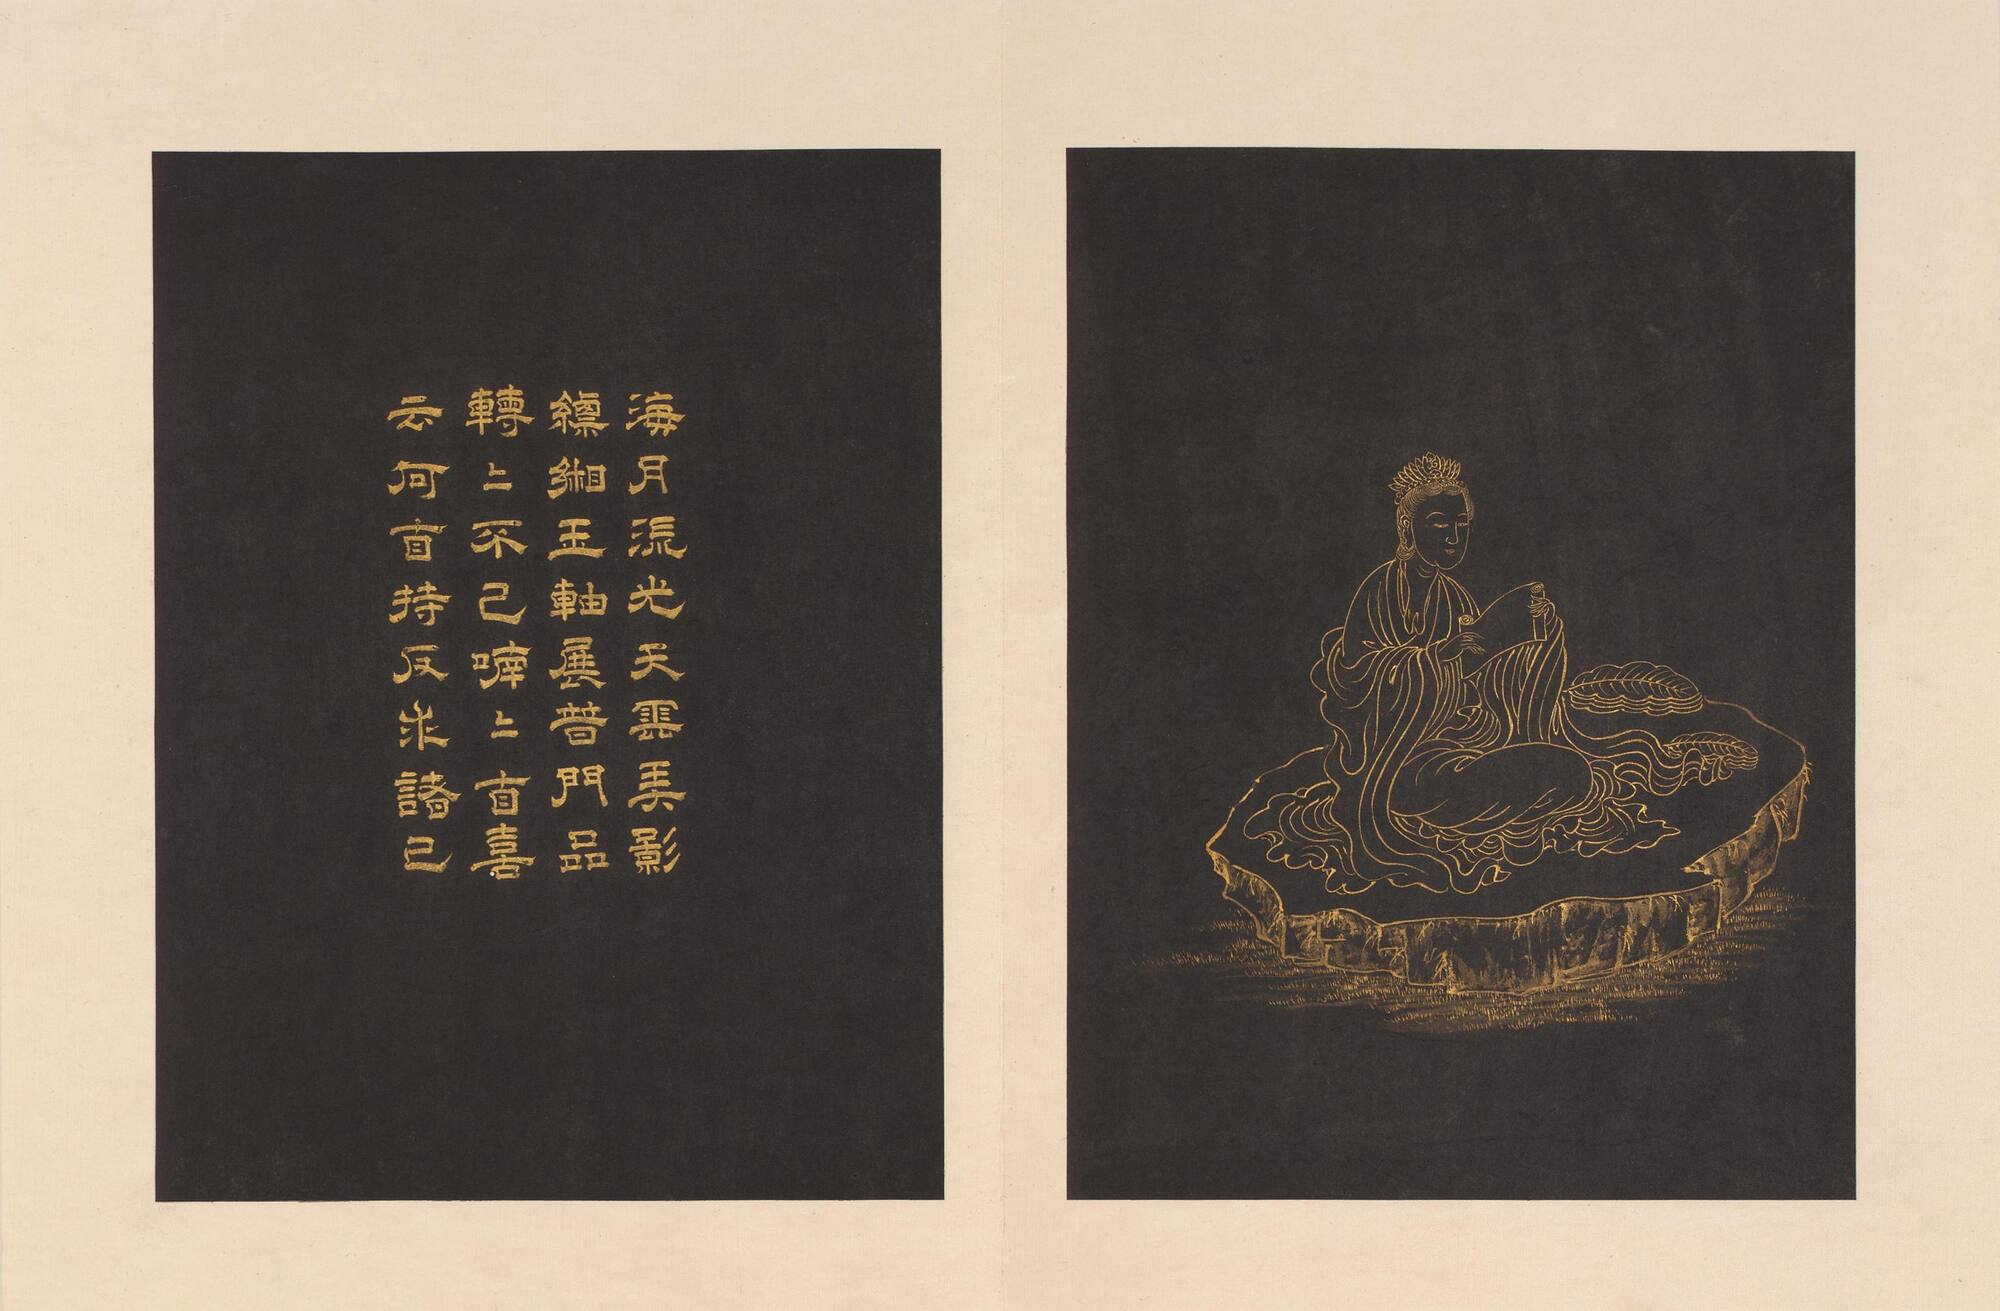 海月流光天雲弄影
縹緗玉軸展普門品
轉〻不已喃〻自喜
云何自持反求諸己